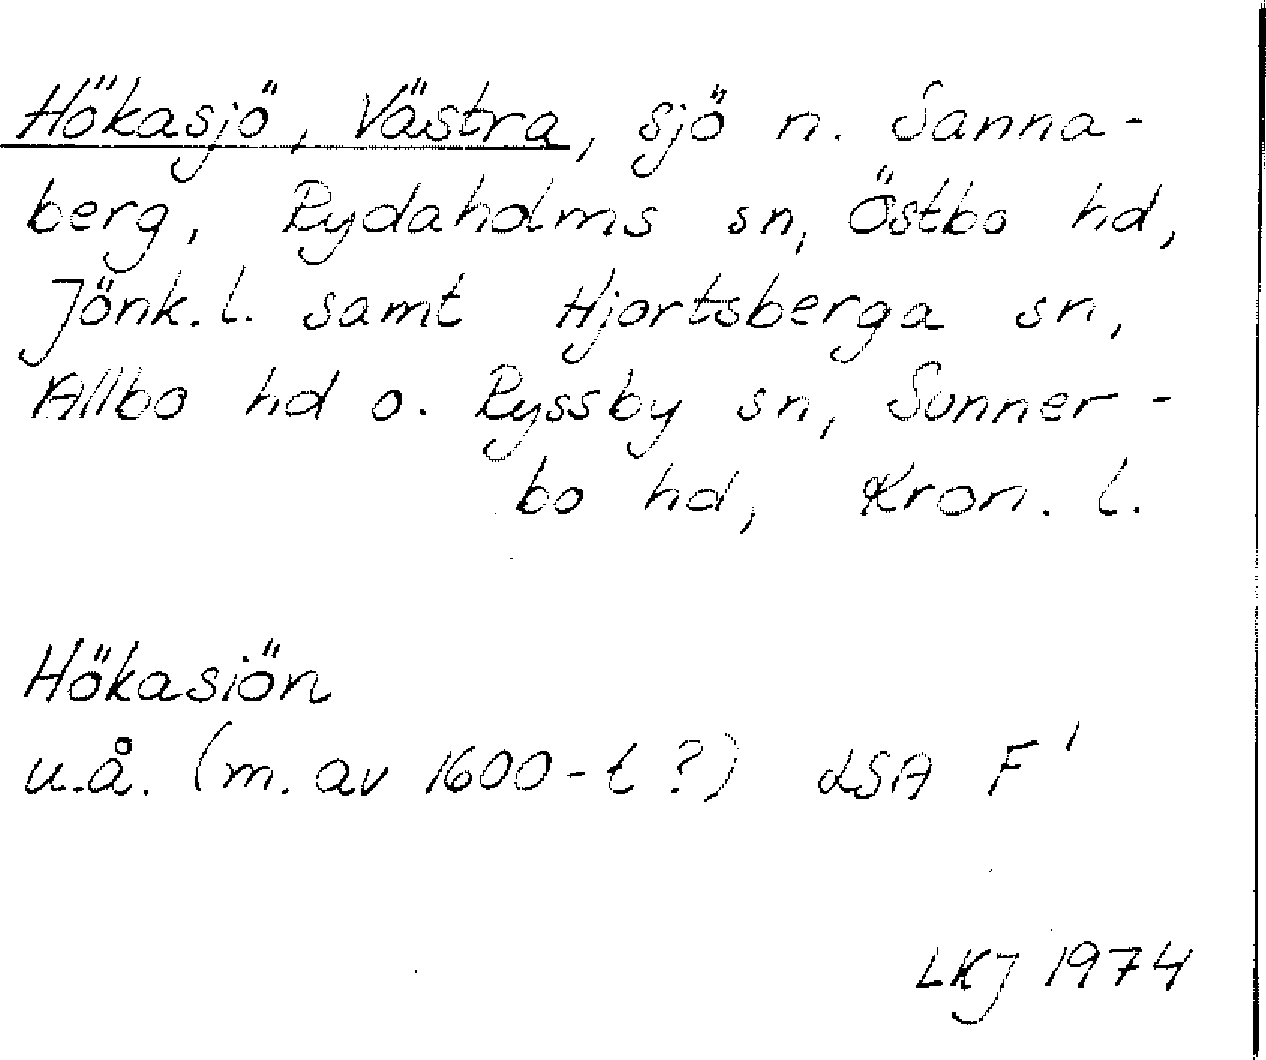 Hökasjö, Västra, sjö n. Sanna-
berg, Rydaholms sn, Östbo hd,
Jönk. l. samt Hjortsberga sn,
Allbo hd o. Ryssby sn, Sunner-
bo hd, Kron. l.
Hökasiön
u.å. (m. av 1600-t?) LSA F'
LKJ 1974